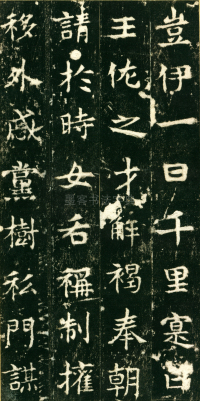 豈伊一日千里寔曰
王佐之才解褐奉朝
請於時女后稱制權
移外戚黨樹私門謀